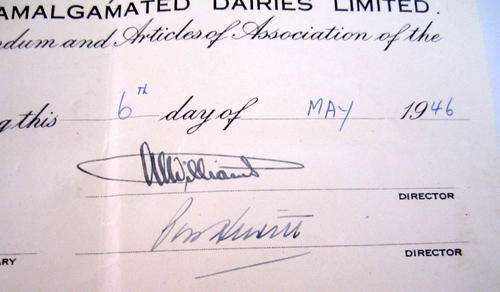 AMALGAMATED DAIRIES LIMITED.
ndum and Articles of Association of the
g this 6th day of MAY 1946
DIRECTOR
RY DIRECTOR